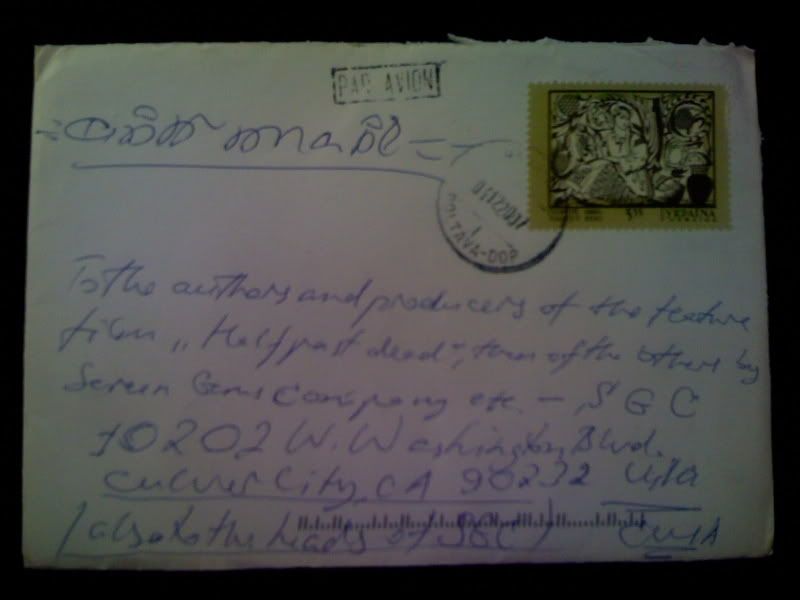 PAR AVION
УКРАЇНА
POLTAVA-DOP
To the authors and producers of the feature
film „Half past dead”, then of the others by
Screen Gems Company etc. – SGC
10202 W. Washington Blvd.
Culver City, CA 90232 USA
/also to the heads of SGC/ США